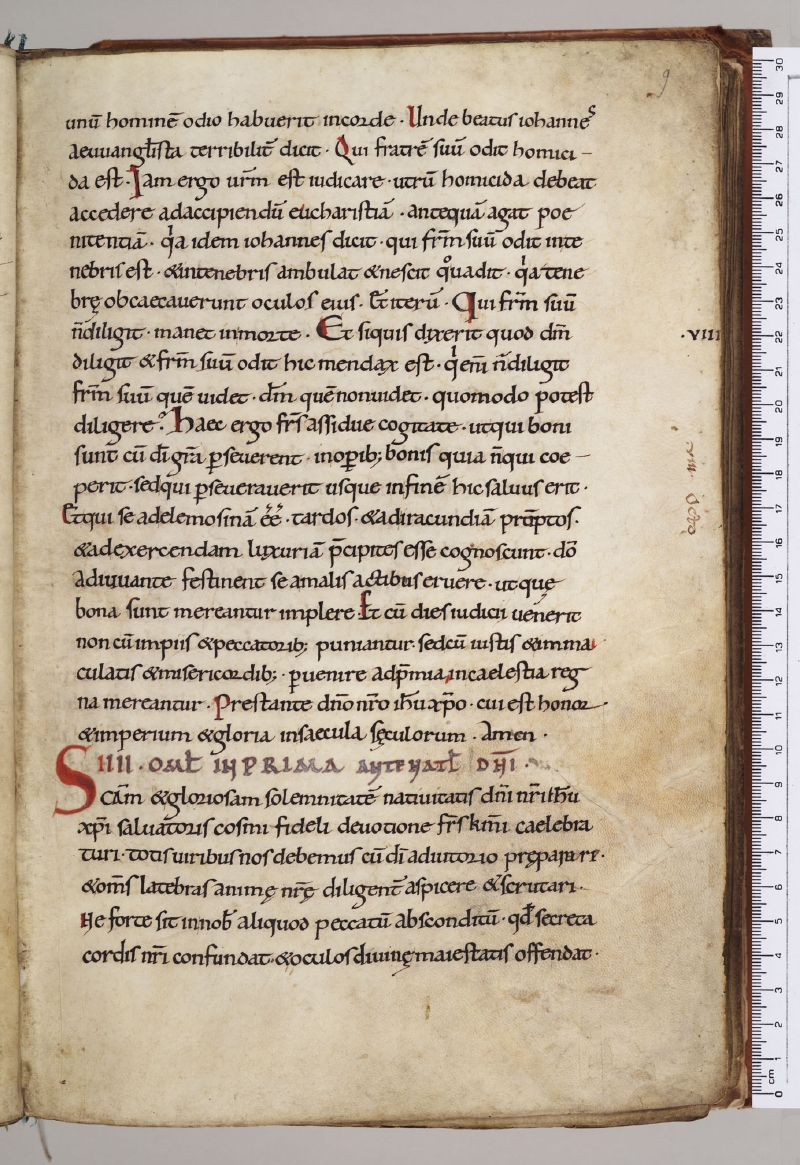 9
unū hominē odio habuerit incorde · Unde beatus iohanneˢ
aeuuanglista terribilit̄ dicit · Qui fratrē suū odit homici –
da est · Iam ergo ur̄m est iudicare · utrū homicida debeat
accedere adaccipiendū eucharistiā · antequā agat poe
nitentiā · qͥa idem iohannes dicit · qui fr̄m suū odit inte
nebris est · &intenebris ambulat &nescit qͦuadit · qͥatene
brę obcaecauerunt oculos eius · Et iterū · Qui fr̄m suū
n̄diligit · manet inmorte · Et siquis dixerit quod dm̄
·VIII
diligit &fr̄m suū odit hic mendax est · qͥem̄ n̄diligit
fr̄m suū quē uidet · dm̄ quēnonuidet · quomodo potest
diligere? Haec ergo fr̄s assidue cogitate · utqui boni
sunt cū dī gr̄a ꝑseuerent · inoꝑib; bonis quia n̄qui coe –
perit · sedqui ꝑseuerauerit usque infinē hic saluus erit ·
Etqui se adelemosinā ēē · tardos · &adiracundiā prūptos ·
&adexercendam luxuriā p̄cipites esse cognoscunt · dō
adiuuante festinent se amalis actibus eruere · utquę
bona sunt mereantur implere · Et cū dies iudicii uenerit
non cū impiis &peccatorib; puniantur · sedcū iustis &imma
culatis &misericordib; · ꝑuenire adp̄mia incaelestia reg
na mereantur · Prestante dn̄o nr̄o ih̄u xp̄o · cui est honor ·
&imperium &gloria insaecula sęculorum · Amen ·
IIII · OML̄ IN PRIMA ANTE NATL̄ DN̄I ·
SCAm̄ &gloriosam solemnitatē natiuitatis dn̄i nr̄i ih̄u
xp̄i saluatoris cosm̄i fideli deuotione fr̄s km̄i caelebra
turi · totis uiribus nos debemus cū dī adiutorio pręparare ·
&om̄s latebras animę nr̄ę diligent̄ aspicere &scrutari ·
Ne forte sit innob̄ aliquod peccatū absconditū · qd̄ secreta
cordis nr̄i confundat · &oculos diuinę maiestatis offendat ·